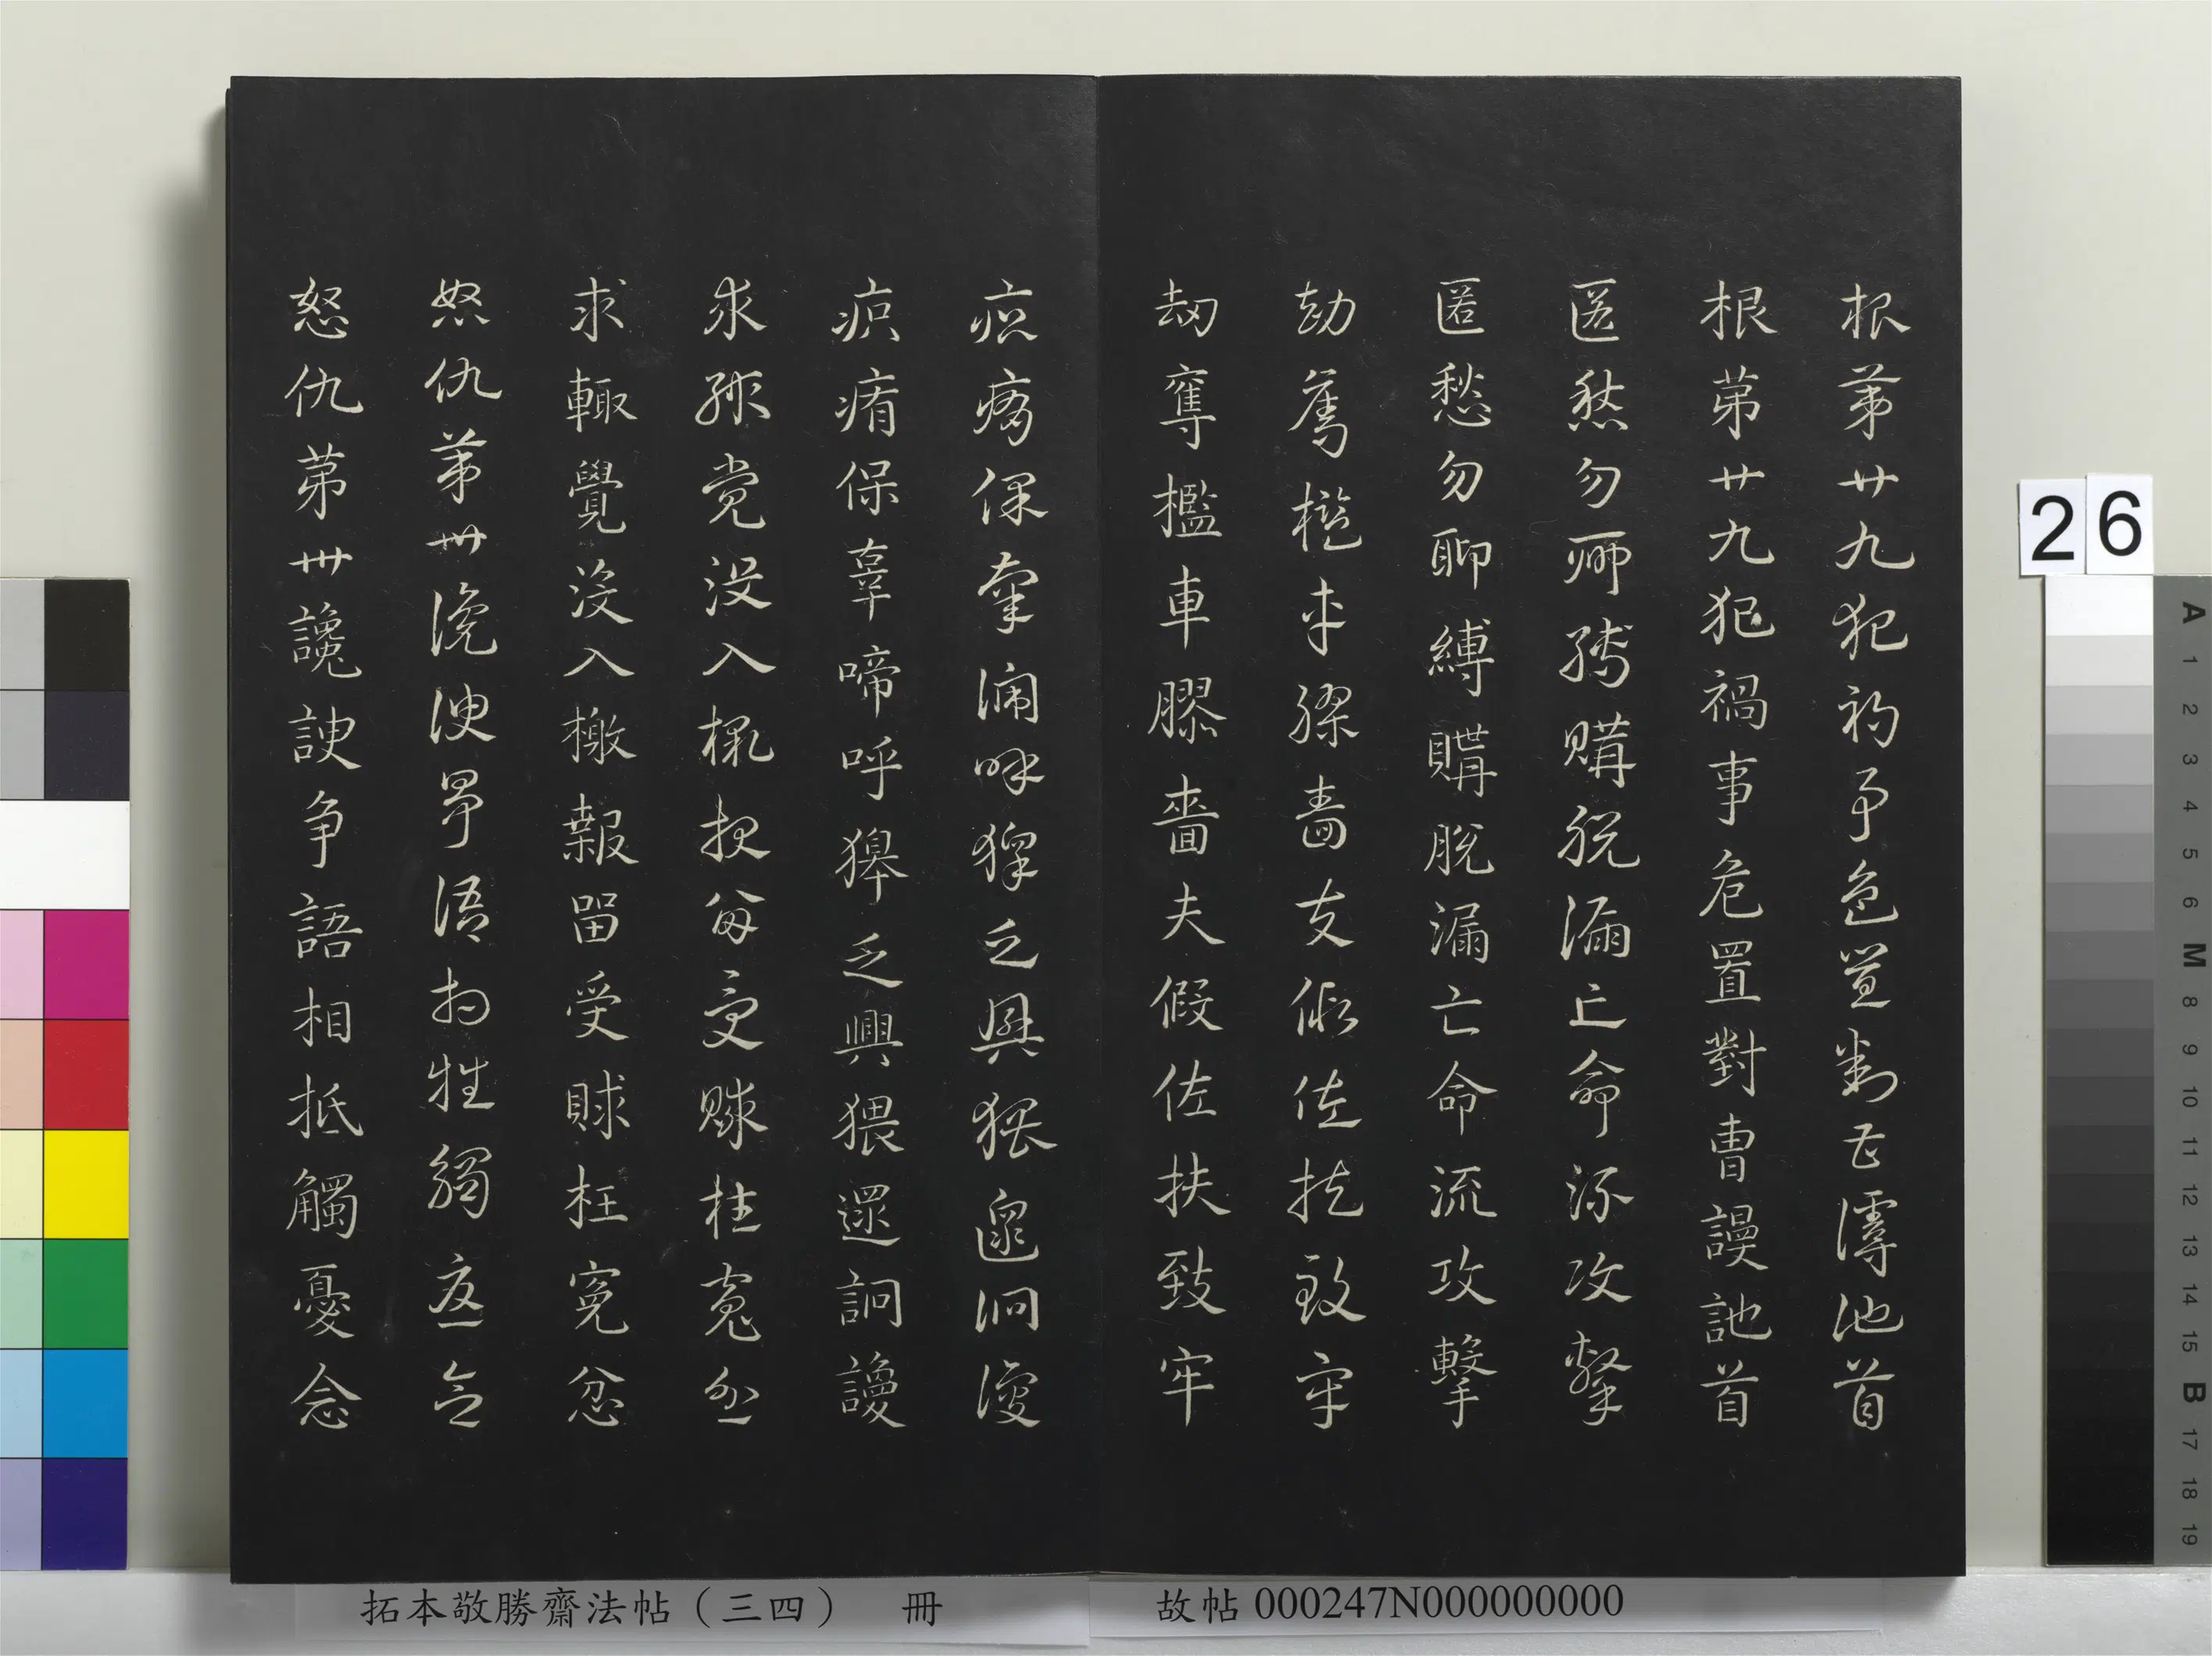 根第廿九犯禍事危置對曹謾訑首
根第廿九犯禍事危置對曹謾訑首
匿愁勿聊縛購脫漏亡命流攻擊
匿愁勿聊縛購脫漏亡命流攻擊
劫奪檻車膠嗇夫假佐扶致牢
劫奪檻車膠嗇夫假佐扶致牢
疻痏保辜啼呼獋乏興猥遝詗讂
疻痏保辜啼呼獋乏興猥遝詗讂
求輙覺没入檄報留受賕枉寃忿
求輙覺没入檄報留受賕枉寃忿
怒仇第卅讒諛爭語相抵觸憂念
怒仇第卅讒諛争語相抵觸憂念
26
A 1 2 3 4 5 6 M 8 9 10 11 12 13 14 15 B 17 18 19
拓本敬勝齋法帖（三四） 冊
故帖 000247N000000000